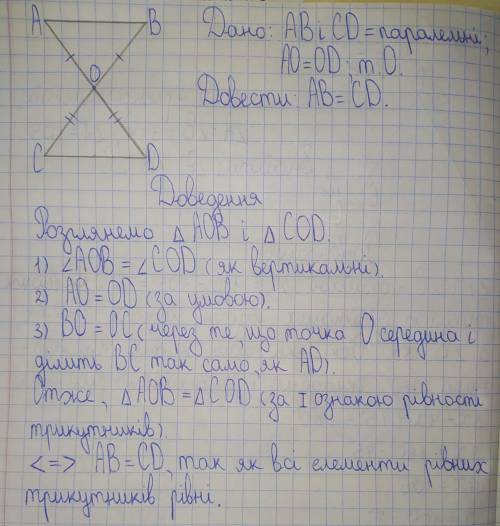 A B Дано: AB і CD = паралельні;
O AO=OD; т. O.
Довести: AB=CD.
C D
Доведення
Розглянемо △AOB і △COD.
1) ∠AOB = ∠COD (як вертикальні).
2) AO=OD (за умовою).
3) BO=OC (через те, що точка O середина і
ділить BC так само, як AD).
Отже, △AOB = △COD (за I ознакою рівності
трикутників).
<=> AB=CD, так як всі елементи рівних
трикутників рівні.